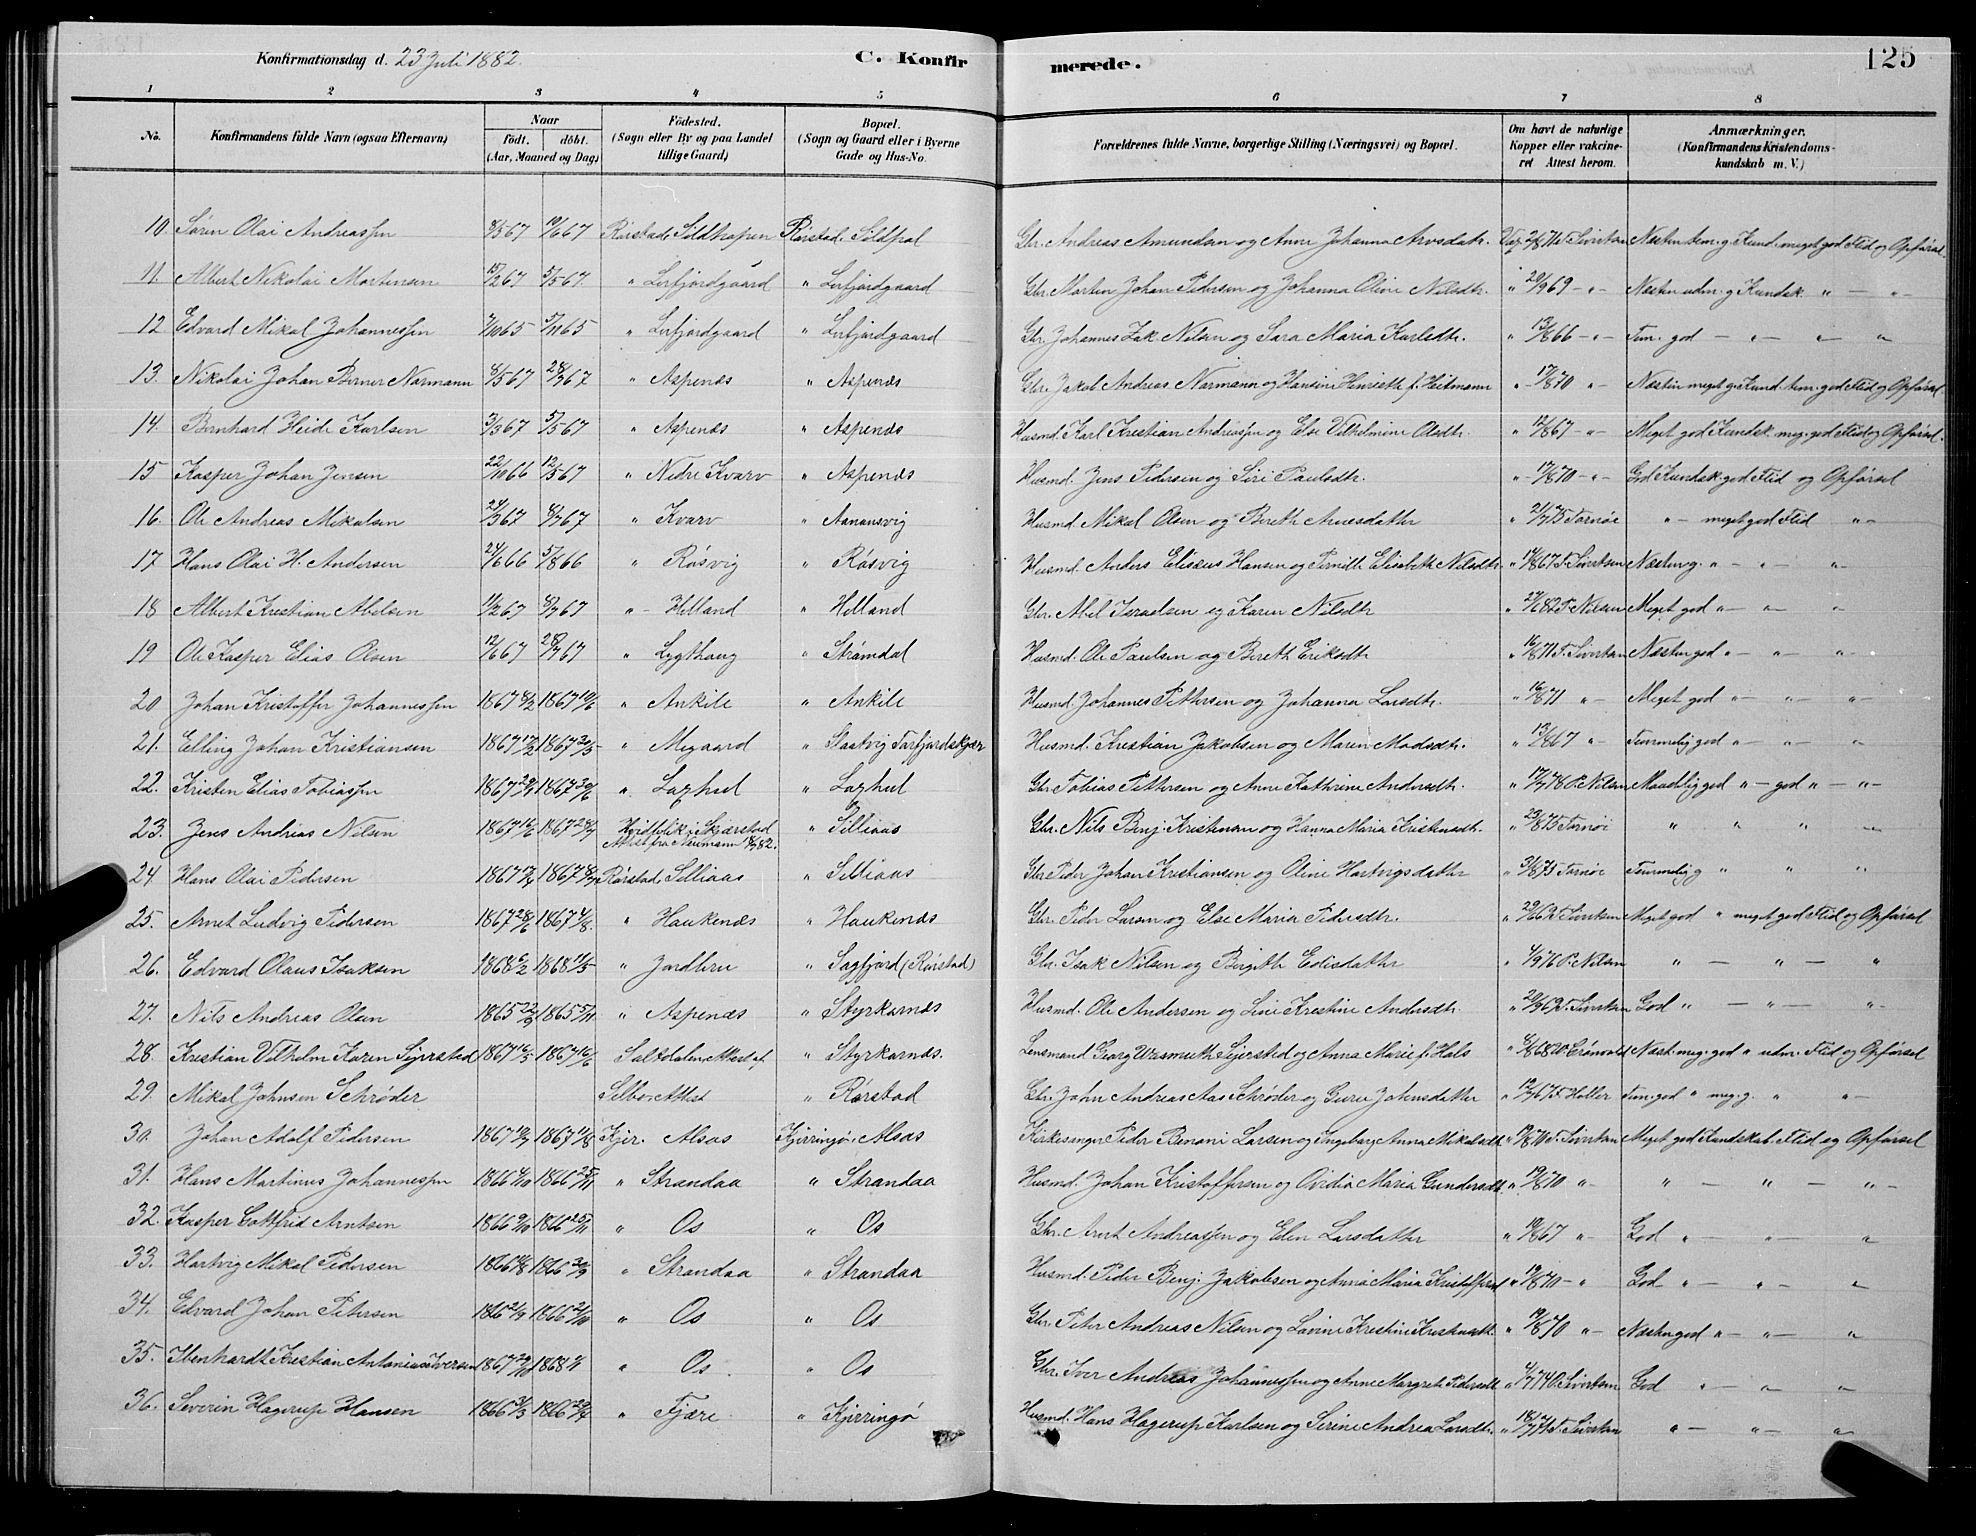 Konfirmationsdag d. 23 Juli 1882. C. Konfirmerede. 125
1 2 3 4 5 6 7 8
No. Konfirmandens fulde Navn (ogsaa Efternavn) Naar födt. döbt. (Aar, Maaned og Dag) Födested. (Sogn eller By og paa Landet tillige Gaard) Bopæl. (Sogn og Gaard eller i Byerne Gade og Hus-No. Forældrenes fulde Navne, borgerlige Stilling (Næringsvei) og Bopæl. Om havt de naturlige Kopper eller vakcineret Attest herom. Anmærkninger. (Konfirmandens Kristendomskundskab m. V.)
10 Sörin Olai Andreassen 8/5 67 10/6 67 Rörstad, Sildhopen Rörstad, Sildpol Gbr. Andreas Amundsen og Anne Johanna Arnsdatr. Vax. 2/8 71 T. Sivertsen Næsten tem. g. Kund. meget god Flid og Opförsel
11. Albert Nikolai Martinsen 15/2 67 5/5 67 " Lerfjordgaard " Lerfjordgaard Gbr. Martin Johan Pedersen og Johanna Oline Nilsdtr. " 20/9 69 - " - Næsten udm. g. Kundsk. " - " -
12 Edvard Mikal Johannessen 7/10 65 5/11 65 " Lerfjordgaard " Lerfjordgaard Gbr. Johannes Zak. Nilsen og Sara Maria Karlsdtr. " 13/8 66 - " - Tem. god - " - " "
13. Nikolai Johan Berner Normann 8/5 67 28/7 67 " Aspenæs " Aspenæs Gbr. Jakob Andreas Normann og Hansine Henriette f. Heitmann " 17/8 70 " - Næsten meget g. Kund. tem. god Flid og Opförsel
14. Bernhard Heide Karlsen 3/3 67 5/5 67 " Aspenæs " Aspenæs Husmd. Karl Kristian Andreassen og Else Vilhelmine Olsdtr. " 12/8 67 - " - Meget god Kundsk. meg. god Flid og Opförsel.
15 Kasper Johan Jensen 22/10 66 12/5 67 " Nedre Kvarv " Aspenæs Husmd. Jens Pedersen og Siri Paulsdtr. " 17/8 70 - " - God Kundsk. god Flid og Opförsel
16. Ole Andreas Mikalsen 24/3 67 8/7 67 " Kvarv " Aanansvig Husmd. Mikal Olsen og Bereth Arnesdatter " 21/7 75 Tornöe " - meget god Flid " -
17 Hans Olai H. Andersen 24/6 66 5/8 66 " Rösvig " Rösvig Husmd. Anders Elisæus Hansen og Pernille Elisabeth Nilsdtr. " 14/8 67 T. Sivertsen Næsten g. " - " - " -
18 Albert Kristian Abelsen 11/2 67 8/7 67 " - Helland " Helland Gbr. Abel Israelsen og Karen Nilsdtr " 27/6 82 P. Nilsen Meget god " - " "
19 Ole Kasper Elias Olsen 12/6 67 28/7 67 " Lygthaug " Strömdal Husmd. Ole Paulsen og Bereth Eriksdtr " 16/8 71 T. Sivertsen Næsten god " - " " -
20 Johan Kristoffer Johannessen 1867 8/2 1867 10/6 " Ankile " Ankile Husmd. Johannes Pettersen og Johanna Larsdtr. " 16/8 71 " - Meget god " - " - " -
21. Elling Johan Kristiansen 1867 17/2 1867 30/5 " Megaard " Slaatvig Torfjordskjær Husmd. Kristian Jakobsen og Maren Madsdtr. " 13/8 67 " - Temmelig god " - " - "
22. Kristen Elias Tobiassen 1867 29/4 1867 30/6 " Laghul " Laghul Gbr. Tobias Pettersen og Anne Kathrine Andersdtr. " 17/7 78 P. Nilsen Maadelig god " - god " - " -
23. Jens Andreas Nilsen 1867 16/6 1867 28/7 Hvidfolik i Skjærstad Attest fra Neumann 18/7 82. " Silliaas Gbr. Nils Benj. Kristensen og Hanna Maria Kristensdtr. " 23/8 75 Tornöe " " " "
24. Hans Olai Pedersen 1867 17/4 1867 8/7 Rörstad, Silliaas " Silliaas Gbr. Peder Johan Kristiansen og Oline Hartvigsdatter " 31/8 75 Tornöe Temmelig g " " "
25. Arnet Ludvig Pedersen 1867 28/6 1867 4/8. " Haukenæs " Haukenæs Gbr. Peder Larsen og Else Maria Pedersdtr. " 29/6 6? T. Sivertsen Meget god " meget god Flid og Opförsel
26. Edvard Olaus Isaksen 1868 6/2 1868 11/5 " Jordbru " Sagfjord (Rörstad) Gbr. Isak Nilsen og Birgitte Edisdatter " 4/9 76 P. Nilsen " - " - "
27. Nils Andreas Olsen 1865 22/9 1865 5/11 " Aspenæs " Styrkesnæs Husmd. Ole Andersen og Line Kristine Andersdtr. " 20/9 6? T. Sivertsen God " - " - " -
28. Kristian Vilhelm Koren Sejersted 1867 16/5 1867 16/6 Saltdalen, Attest af. " Styrkesnæs. Lensmand Georg Wasmuth Sejersted og Anna Marie f. Hals " 5/8 68 O. Grönvold Næst. meg. god " udm. Flid og Opförsel
29. Mikal Johnsen Schröder Selbo. Attest " Rörstad Gbr. John Andreas Aas Schröder og Guru Johnsdatter " 12/9 67 F. Holler Tem. god " meg. g. " " -
30. Johan Adolf Pedersen 1867 10/7 1867 11/8 Kjer. Alsos Kjerringö. Alsos Kirkesanger Peder Benoni Larsen og Ingeborg Anna Mikalsdtr " 19/8 70 T. Sivertsen Meget god Kundskab. Flid og Opförsel
31. Hans Martinus Johannessen 1866 4/10 1866 25/11 " Strandaa " Strandaa Husmd. Johan Kristoffersen og Ovidia Maria Gundersdtr. " 19/8 70 " - " - " - " -
32. Kasper Gottfrid Arntsen 1866 9/10 1866 25/11 " Os " Os Gbr. Arnt Andreassen og Elen Larsdatter " 10/8 67 " - God " - " - "
33. Hartvig Mikal Pedersen 1866 14/8 1866 30/9 " Strandaa " Strandaa Husmd. Peder Benj. Jakobsen og Anna Maria Kristoffersd. " 19/8 70 - " God " - " - "
34. Edvard Johan Petersen 1866 21/9 1866 21/10 " Os " Os Gbr. Peter Andreas Nilsen og Lovine Kristine Kristensdtr. " 19/8 70 " - Næsten god " - " - "
35. Ibenhardt Kristian Antonius Iversen 1867 29/10 1868 1/1 " Os " Os Gbr. Iver Andreas Johannessen og Anne Margrete Pedersdtr " 4/7 74 O. Sivertsen God " - " - "
36. Severin Hagerup Hansen 1866 31/3 1866 29/4 " Fjære " Kjerringö Husmd. Hans Hagerup Karlsen og Serine Andrea Larsdtr. " 18/7 71 T. Sivertsen " - " - "